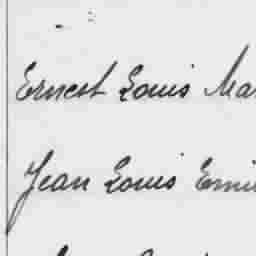 Ernest Louis Ma
Jean Louis Emi